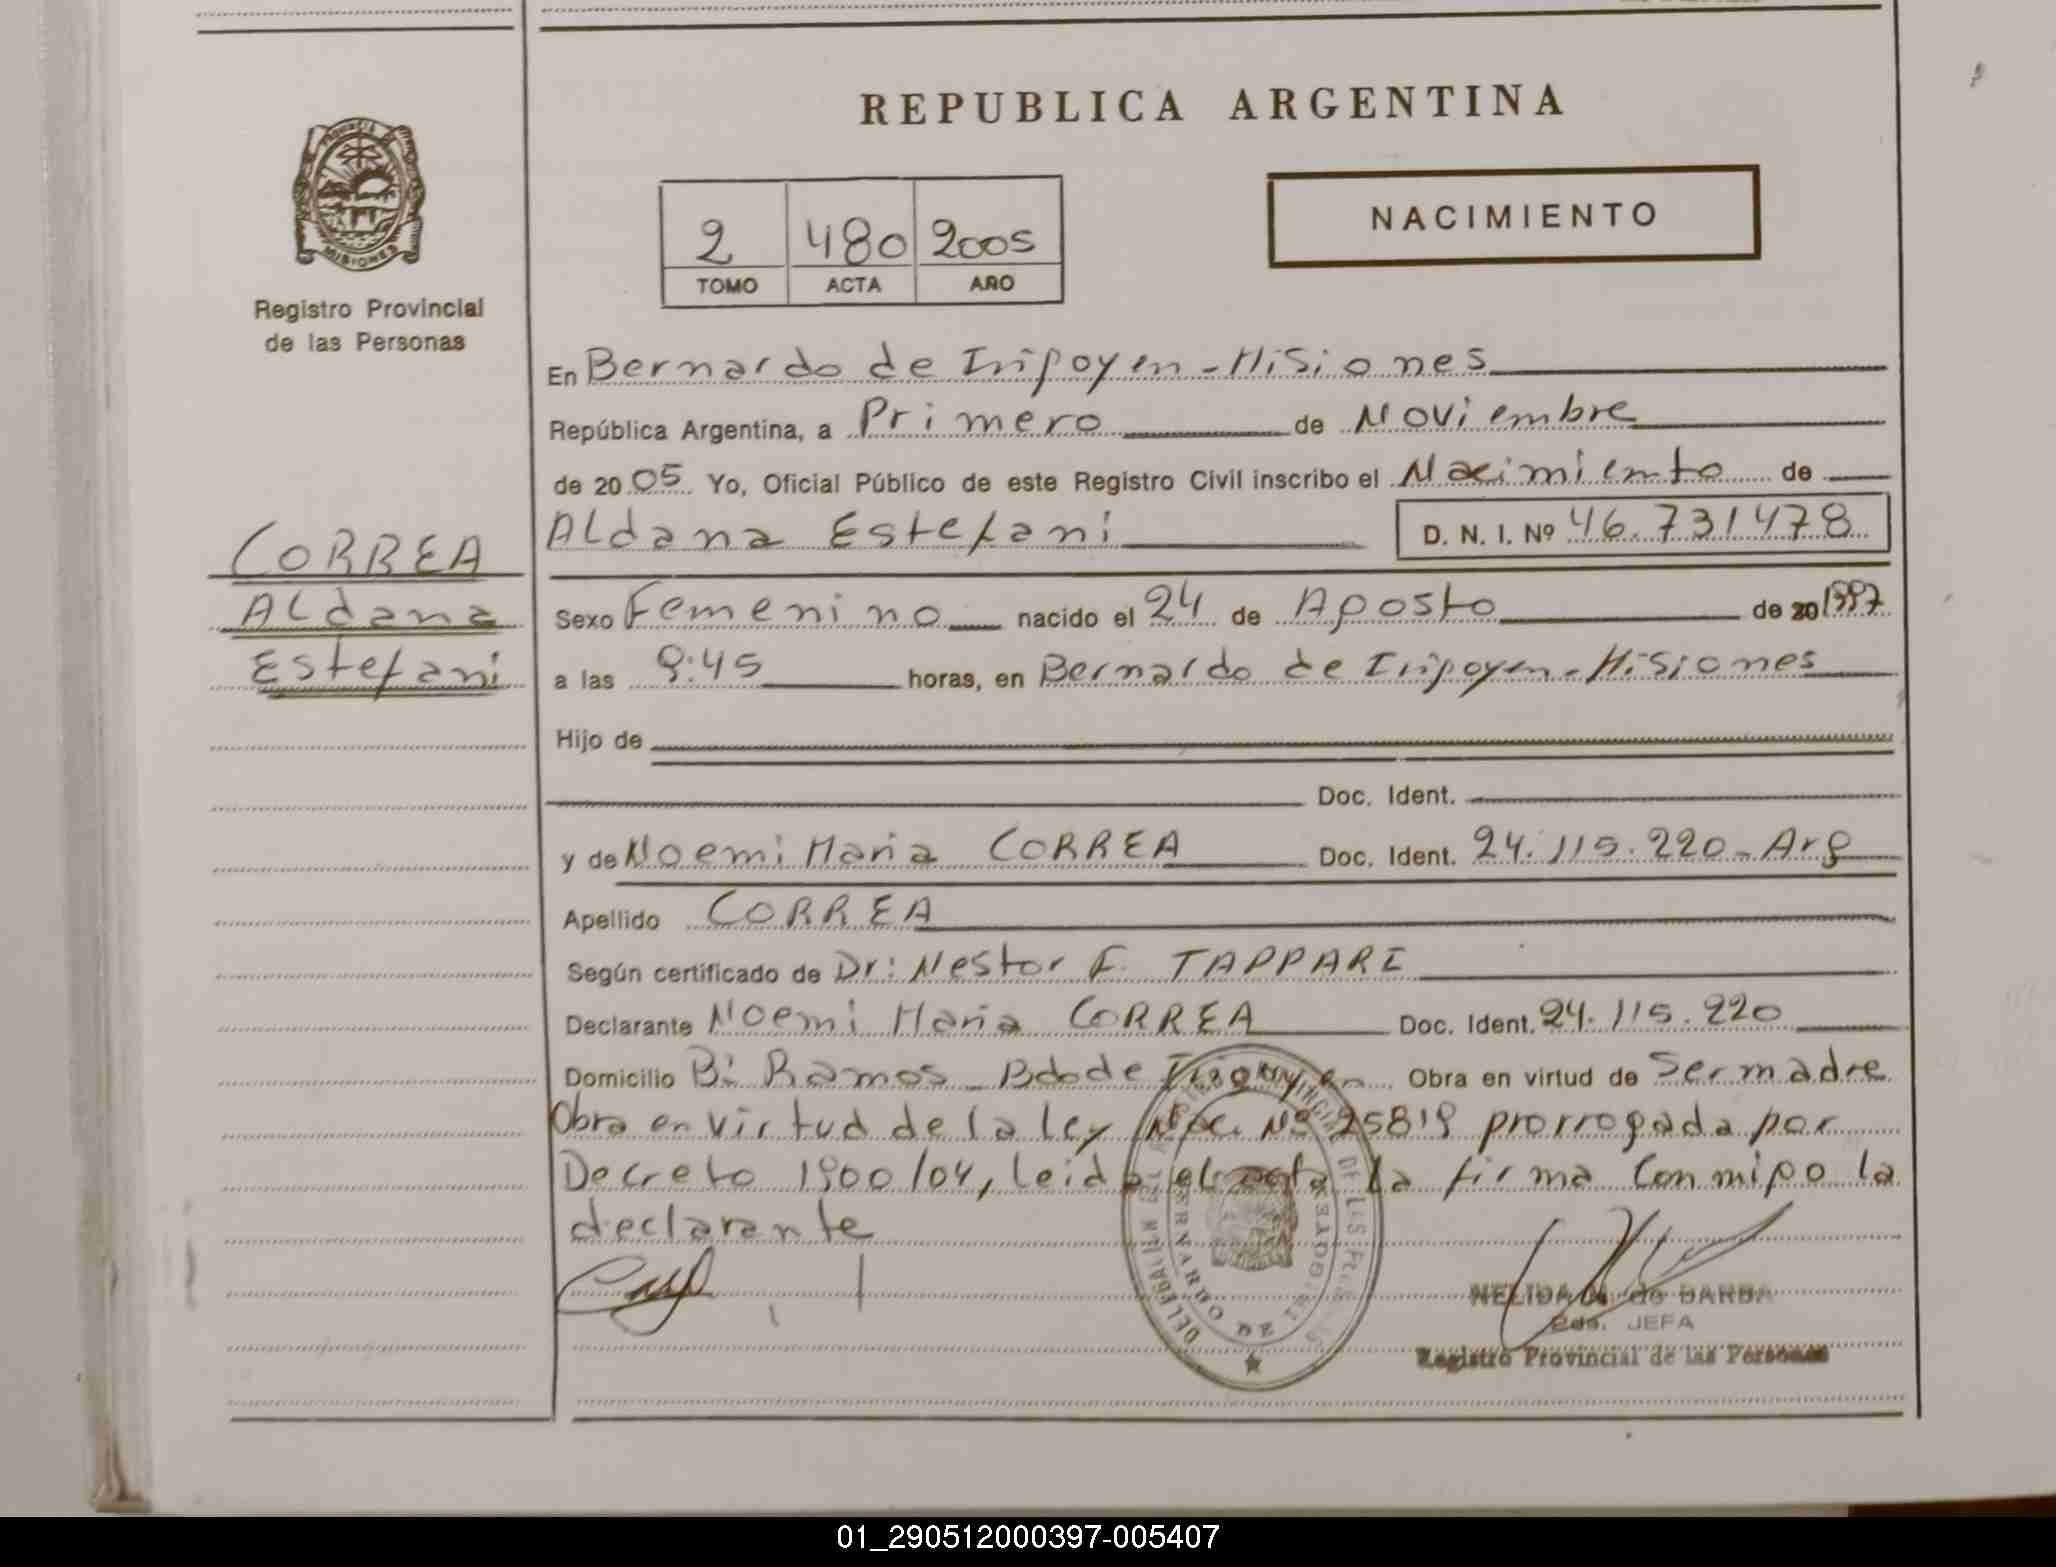 REPUBLICA ARGENTINA
NACIMIENTO
2 480 2005
TOMO ACTA AÑO
PROVINCIA DE MISIONES
Registro Provincial
de las Personas
CORREA
Aldana
Estefani
En Bernardo de Irigoyen - Misiones
República Argentina, a Primero de Noviembre
de 2005 Yo, Oficial Público de este Registro Civil inscribo el Nacimiento de
Aldana Estefani D. N. I. Nº 46.731478
Sexo Femenino nacido el 24 de Agosto de 20 1997
a las 9:45 horas, en Bernardo de Irigoyen - Misiones
Hijo de
Doc. Ident.
y de Noemi Maria CORREA Doc. Ident. 24.115.220 - Arg
Apellido CORREA
Según certificado de Dr: Nestor F. TAPPARI
Declarante Noemi Maria CORREA Doc. Ident. 24.115.220
Domicilio Bº Ramos - Bdo de Irigoyen Obra en virtud de Ser madre
Obra en virtud de la ley Nac. Nº 25819 prorrogada por
Decreto 1900/04, leida el acta la firma conmigo la
declarante
NELIDA de BARBA
JEFA
Registro Provincial de las Personas
BERNARDO DE IRIGOYEN
01_290512000397-005407